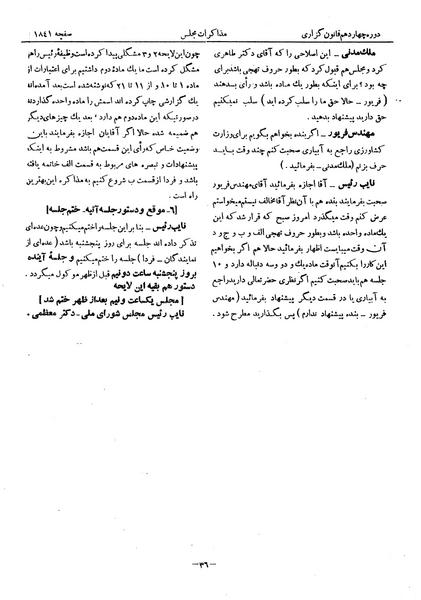 دوره چهاردهم قانون گزاری
مذاکرات مجلس
صفحه ۱۸۴۱
ملک مدنی - این اصلاحی را که آقای دکتر طاهری
کرد و مجلس هم قبول کرد که بطور حروف تهجی باشد برای
چه بود؛ برای اینکه بطور یک ماده باشد و رأی بدهند
(فریور - حالا حق ما را سلب کرده اید) سلب نمیکنیم
حق دارید پیشنهاد بدهید.
مهندس فریور - اگر بنده بخواهم بگویم برای وزارت
کشاورزی راجع به آبیاری صحبت کنم چند وقت بباید
حرف بزنم (ملک مدنی - بفرمائید.)
نایب رئیس - آقا اجازه بفرمائید آقای مهندس فریور
صحبت بفرمایند بنده هم با آن نظر آقا مخالف نیستم میخواستم
عرض کنم وقت میگذرد امروز صبح که قرار شد که این
یک ماده واحده باشد و بطور حروف تهجی الف و ب و ج و د
آن وقت میبایست اظهار بفرمائید حالا هم اگر بخواهیم
این کار را بکنیم آنوقت ماده یک و دو وسه دارد و ۱۰
جلسه هم باید صحبت کنیم اگر نظری حضرتعالی دارید راجع
به آبیاری یا در قسمت دیگر پیشنهاد بفرمائید (مهندس
فریور - بنده پیشنهاد ندارم) پس بگذارید مطرح شود.
چون این لایحه ۲ و ۳ مشکلی پیدا کرده است وظیفهٔ رئیس را هم
مشکل کرده است ما یک مادهٔ دوم داشتیم برای اعتبارات از
ماده ۱ تا ۱۰ و از ۱۱ تا ۲۱ که نوشته شده است بعد آمده اند
یک گزارشی چاپ کرده اند اسمش را ماده واحده گذارده اند
درصورتیکه این ماده دوم هم دارد بعد یک چیزهای دیگر
هم ضمیمه شده حالا اگر آقایان اجازه بفرمایند باین
وضعیت خاص که رأی این قسمت هم باشد مشروط به اینکه
پیشنهادات و تبصره های مربوط به قسمت الف خاتمه یافته
باشد و فردا از قسمت ب شروع کنیم به مذاکره این بهترین
راه است.
[۶- موقع و دستور جلسه آتیه. ختم جلسه]
نایب رئیس - بنابراین جلسه را ختم میکنیم و چون عده ای
تذکر داده اند جلسه برای روز پنجشنبه باشد (عده ای از
نمایندگان - فردا) جلسه را ختم میکنیم و جلسهٔ آینده
بروز پنجشنبه ساعت دو و نیم قبل از ظهر موکول میگردد.
دستور هم بقیه این لایحه
[مجلس یکساعت و نیم بعد از ظهر ختم شد]
نایب رئیس مجلس شورای ملی - دکتر معظمی.
-۳۶-